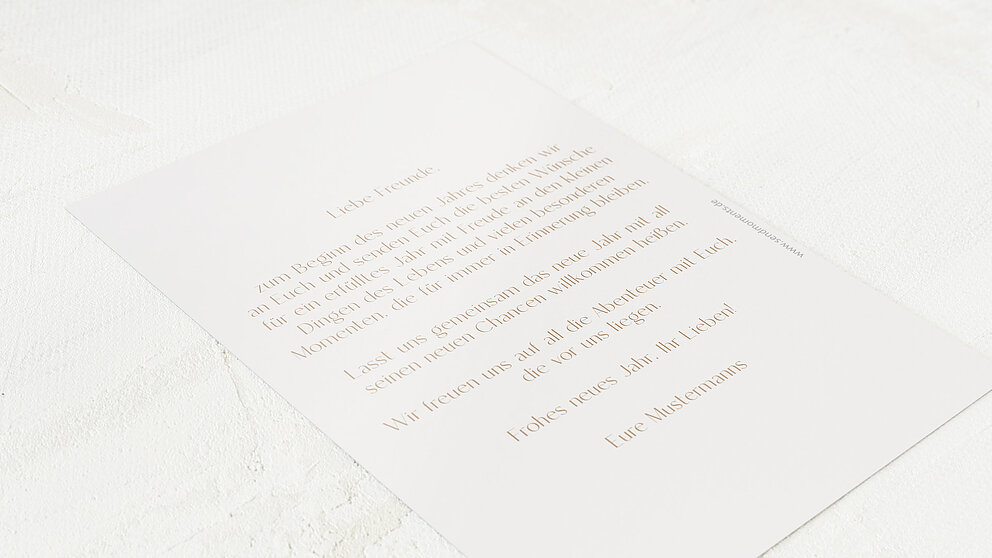 Liebe Freunde,
zum Beginn des neuen Jahres denken wir
an Euch und senden Euch die besten Wünsche
für ein erfülltes Jahr mit Freude an den kleinen
Dingen des Lebens und vielen besonderen
Momenten, die für immer in Erinnerung bleiben.
Lasst uns gemeinsam das neue Jahr mit all
seinen neuen Chancen willkommen heißen.
Wir freuen uns auf all die Abenteuer mit Euch,
die vor uns liegen.
Frohes neues Jahr, Ihr Lieben!
Eure Mustermanns
www.sendmoments.de